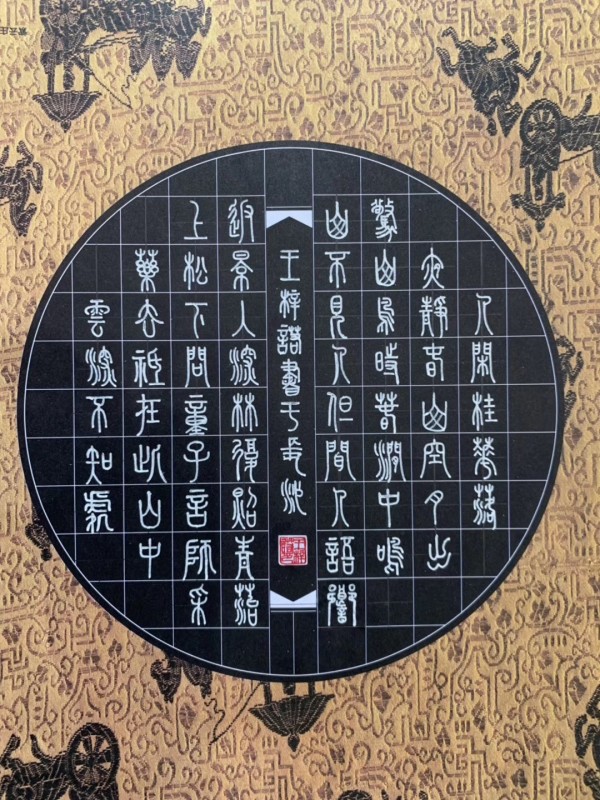 人閑桂華落
夜靜春山空月出
驚山鳥時春澗中鳴
山不見人但聞人語響
王梓書于長沙
返景入深林復照青苔
上松下問童子言師采
藥去祇在此山中
雲深不知處